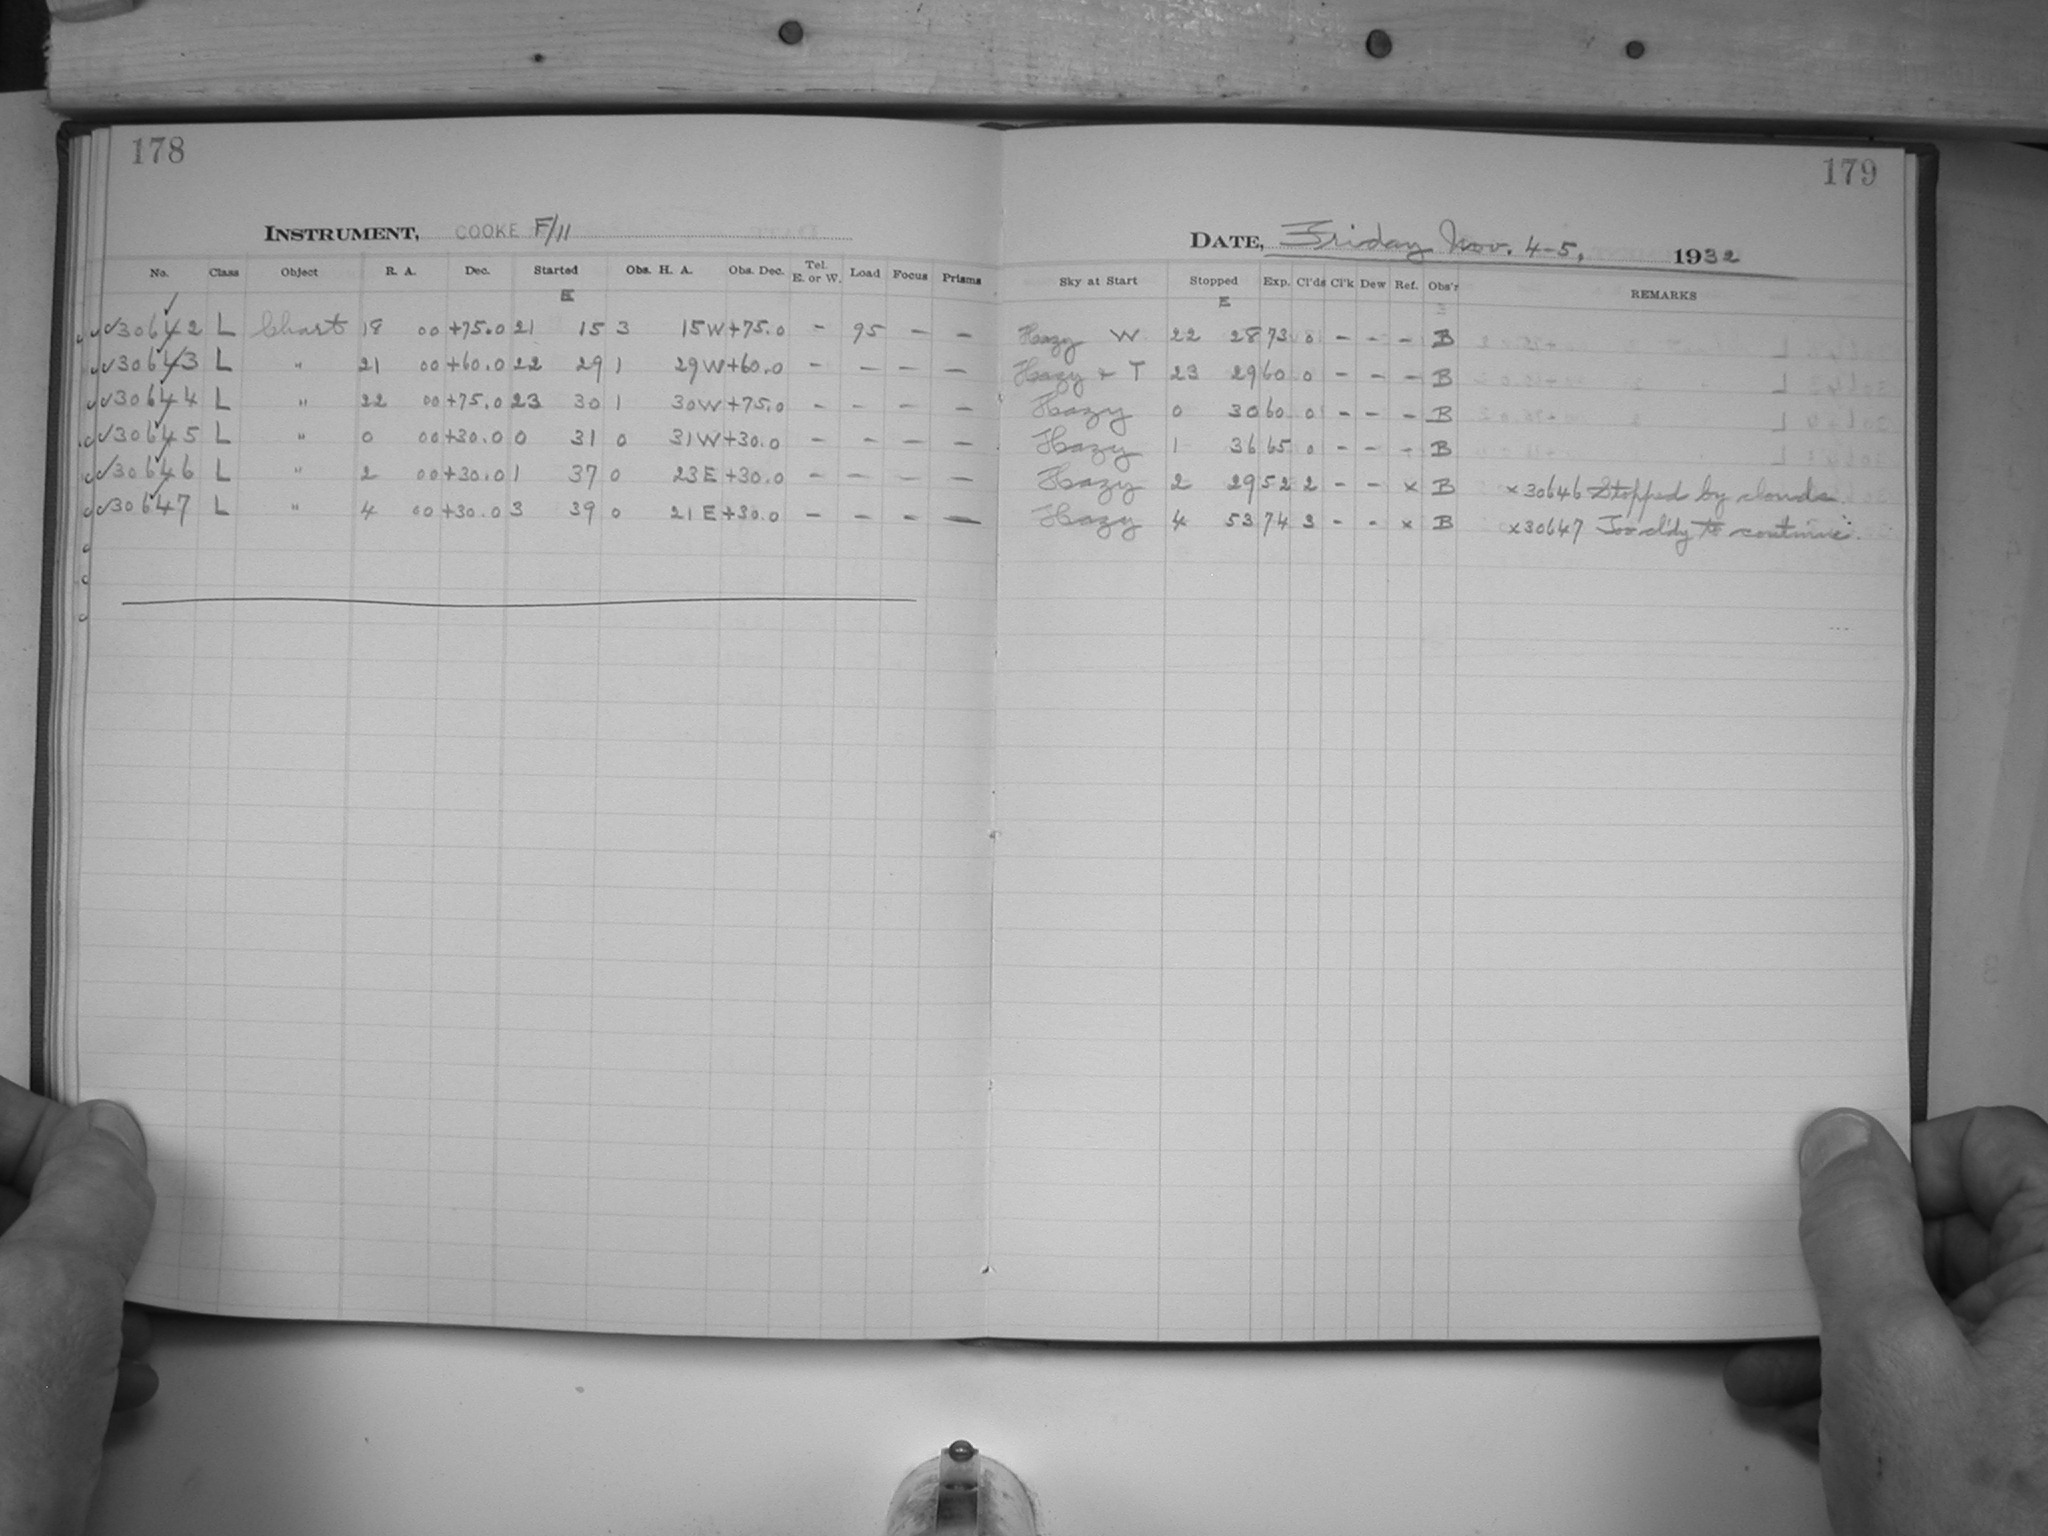 178
INSTRUMENT, COOKE F/11
No. Class Object R. A. Dec. Started Obs. H. A. Obs. Dec. Tel. E. or W. Load Focus Prisms
E
30642 L Chart 18 00 +75.0 21 15 3 15W +75.0 - 95 - -
30643 L " 21 00 +60.0 22 29 1 29W +60.0 - - - -
30644 L " 22 00 +75.0 23 30 1 30W +75.0 - - - -
30645 L " 0 00 +30.0 0 31 0 31W +30.0 - - - -
30646 L " 2 00 +30.0 1 37 0 23E +30.0 - - - -
30647 L " 4 00 +30.0 3 39 0 21E +30.0 - - - -
179
DATE, Friday Nov. 4-5, 1932
Sky at Start Stopped Exp. Cl'ds Cl'k Dew Ref. Obs'r REMARKS
E
Hazy W 22 28 73 0 - - - B
Hazy + T 23 29 60 0 - - - B
Hazy 0 30 60 0 - - - B
Hazy 1 36 65 0 - - - B
Hazy 2 29 52 2 - - x B x30646 Stopped by clouds.
Hazy 4 53 74 3 - - x B x30647 Too cl'dy to continue.